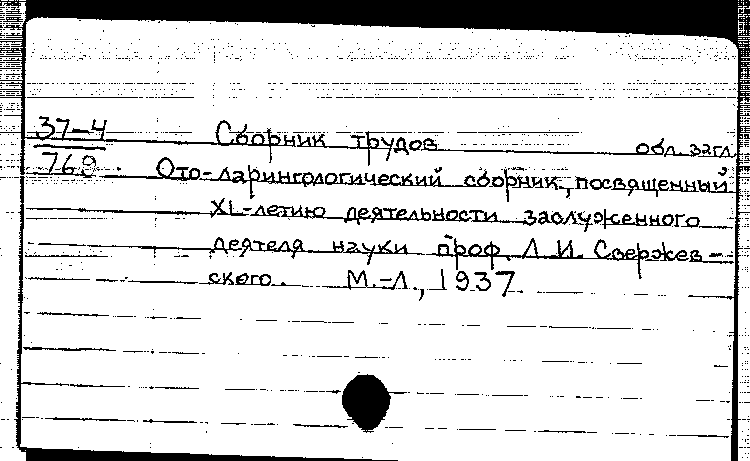 37-4 Сборник трудов обл. загл.
769. Ото-ларингологический сборник, посвященный
XL-летию деятельности заслуженного
деятеля науки проф. Л. И. Свержев-
ского. М.-Л., 1937.